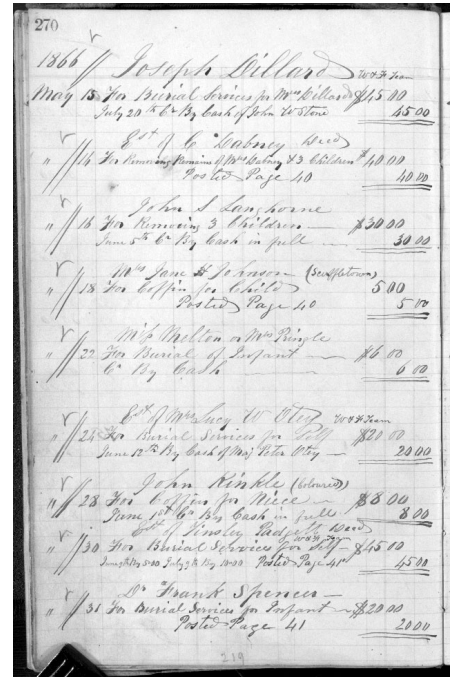 270
1866 // Joseph Dillard W & H Team
May 15 For Burial Services for Mrs Dillard $45 00
July 20th Cr By Cash of John W Stone 45 00
Est of C Dabney Decd
" // 16 For Removing Remains of Mrs Dabney & 3 Children $40 00
Posted Page 40 40 00
John S Langhorne
" // 16 For Removing 3 Children $30 00
June 5th Cr By Cash in full 30 00
Mrs Jane H Johnson (Scuffletown)
" // 18 For Coffin for Child 5 00
Posted Page 40 5 00
Melton or Mrs Pringle
" // 22 For Burial of Infant $6 00
Cr By Cash 6 00
Est of Mrs Lucy W Otey W & H Team
" // 24 For Burial Services for Self $20 00
June 12th By Cash of Maj Peter Otey 20 00
John Kinkle (Coloured)
" // 28 For Coffin for Niece $8 00
June 1st Cr By Cash in full 8 00
Est Tinsley Padgett Decd
W & H Team
" // 30 For Burial Services for Self $45 00
Posted Page 41 45 00
Dr Frank Spencer
" // 31 For Burial Services for Infant $20 00
Posted Page 41 20 00
219